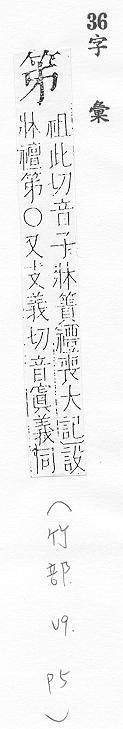 36
字彙
笫
祖此切音子牀簀禮喪大記設
牀襢笫〇又支義切音寘義同
(竹部. V9. P5)